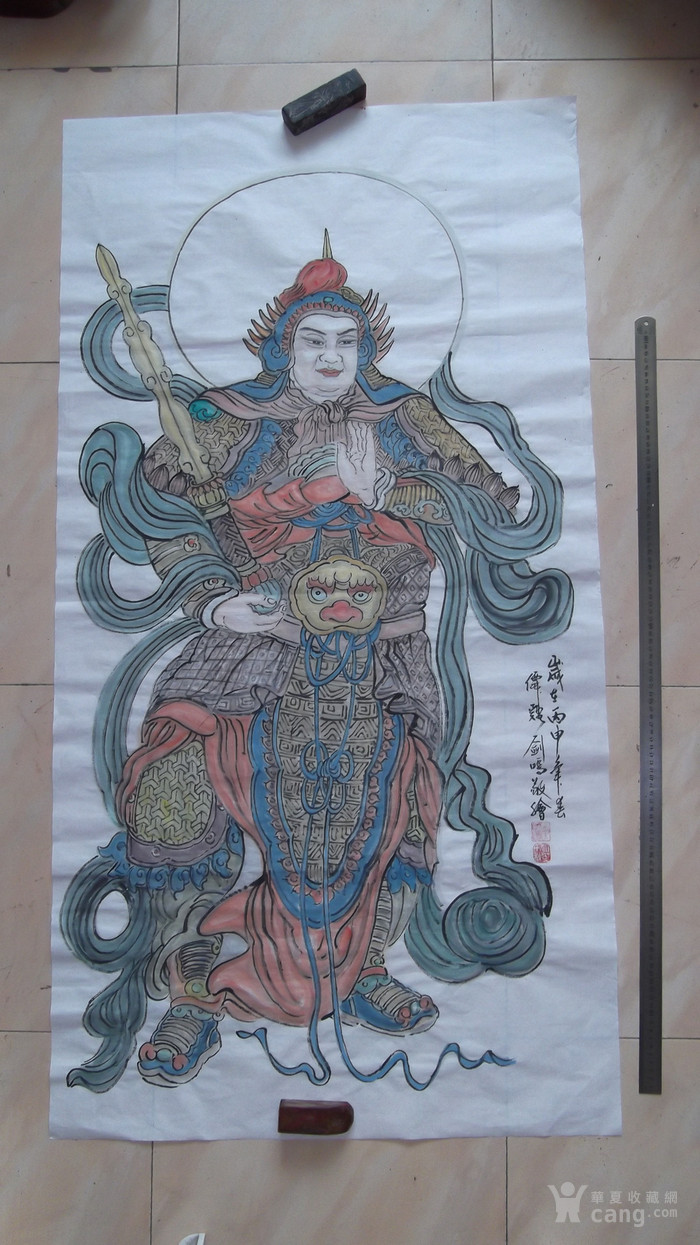 歲在丙申年春
剑鸣敬繪
華夏收藏網
cang.com